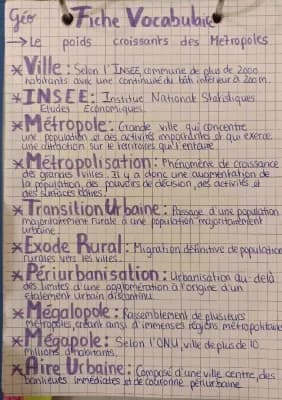 Géo Fiche Vocabulaire
→ Le poids croissants des Métropoles
* Ville : Selon l'INSEE, commune de plus de 2000
habitants avec une continuité du bâti inférieur à 200m.
* INSEE : Institue National Statistiques
Etudes Economiques.
* Métropole : Grande ville qui concentre
une population et des activités importantes et qui exerce
une attraction sur le territoires qui l'entoure
* Métropolisation : Phénomène de croissance
des grandes villes. Il y a donc une augmentation de
la population, des pouvoirs de décision, des activités et
des surfaces baties.
* Transition Urbaine : Passage d'une population
majoritairement rurale à une population majoritairement
urbaine.
* Exode Rural : Migration définitive de population
rurales vers les villes.
* Périurbanisation : Urbanisation au-delà
des limites d'une agglomération à l'origine d'un
étalement urbain discontinu.
* Mégalopole : Rassemblement de plusieurs
métropoles, créant ainsi d'immenses régions métropolitaines
* Mégapole : Selon l'ONU, ville de plus de 10
millions d'habitants.
* Aire Urbaine : Composé d'une ville centre, des
banlieues immédiates et de couronne périurbaine.